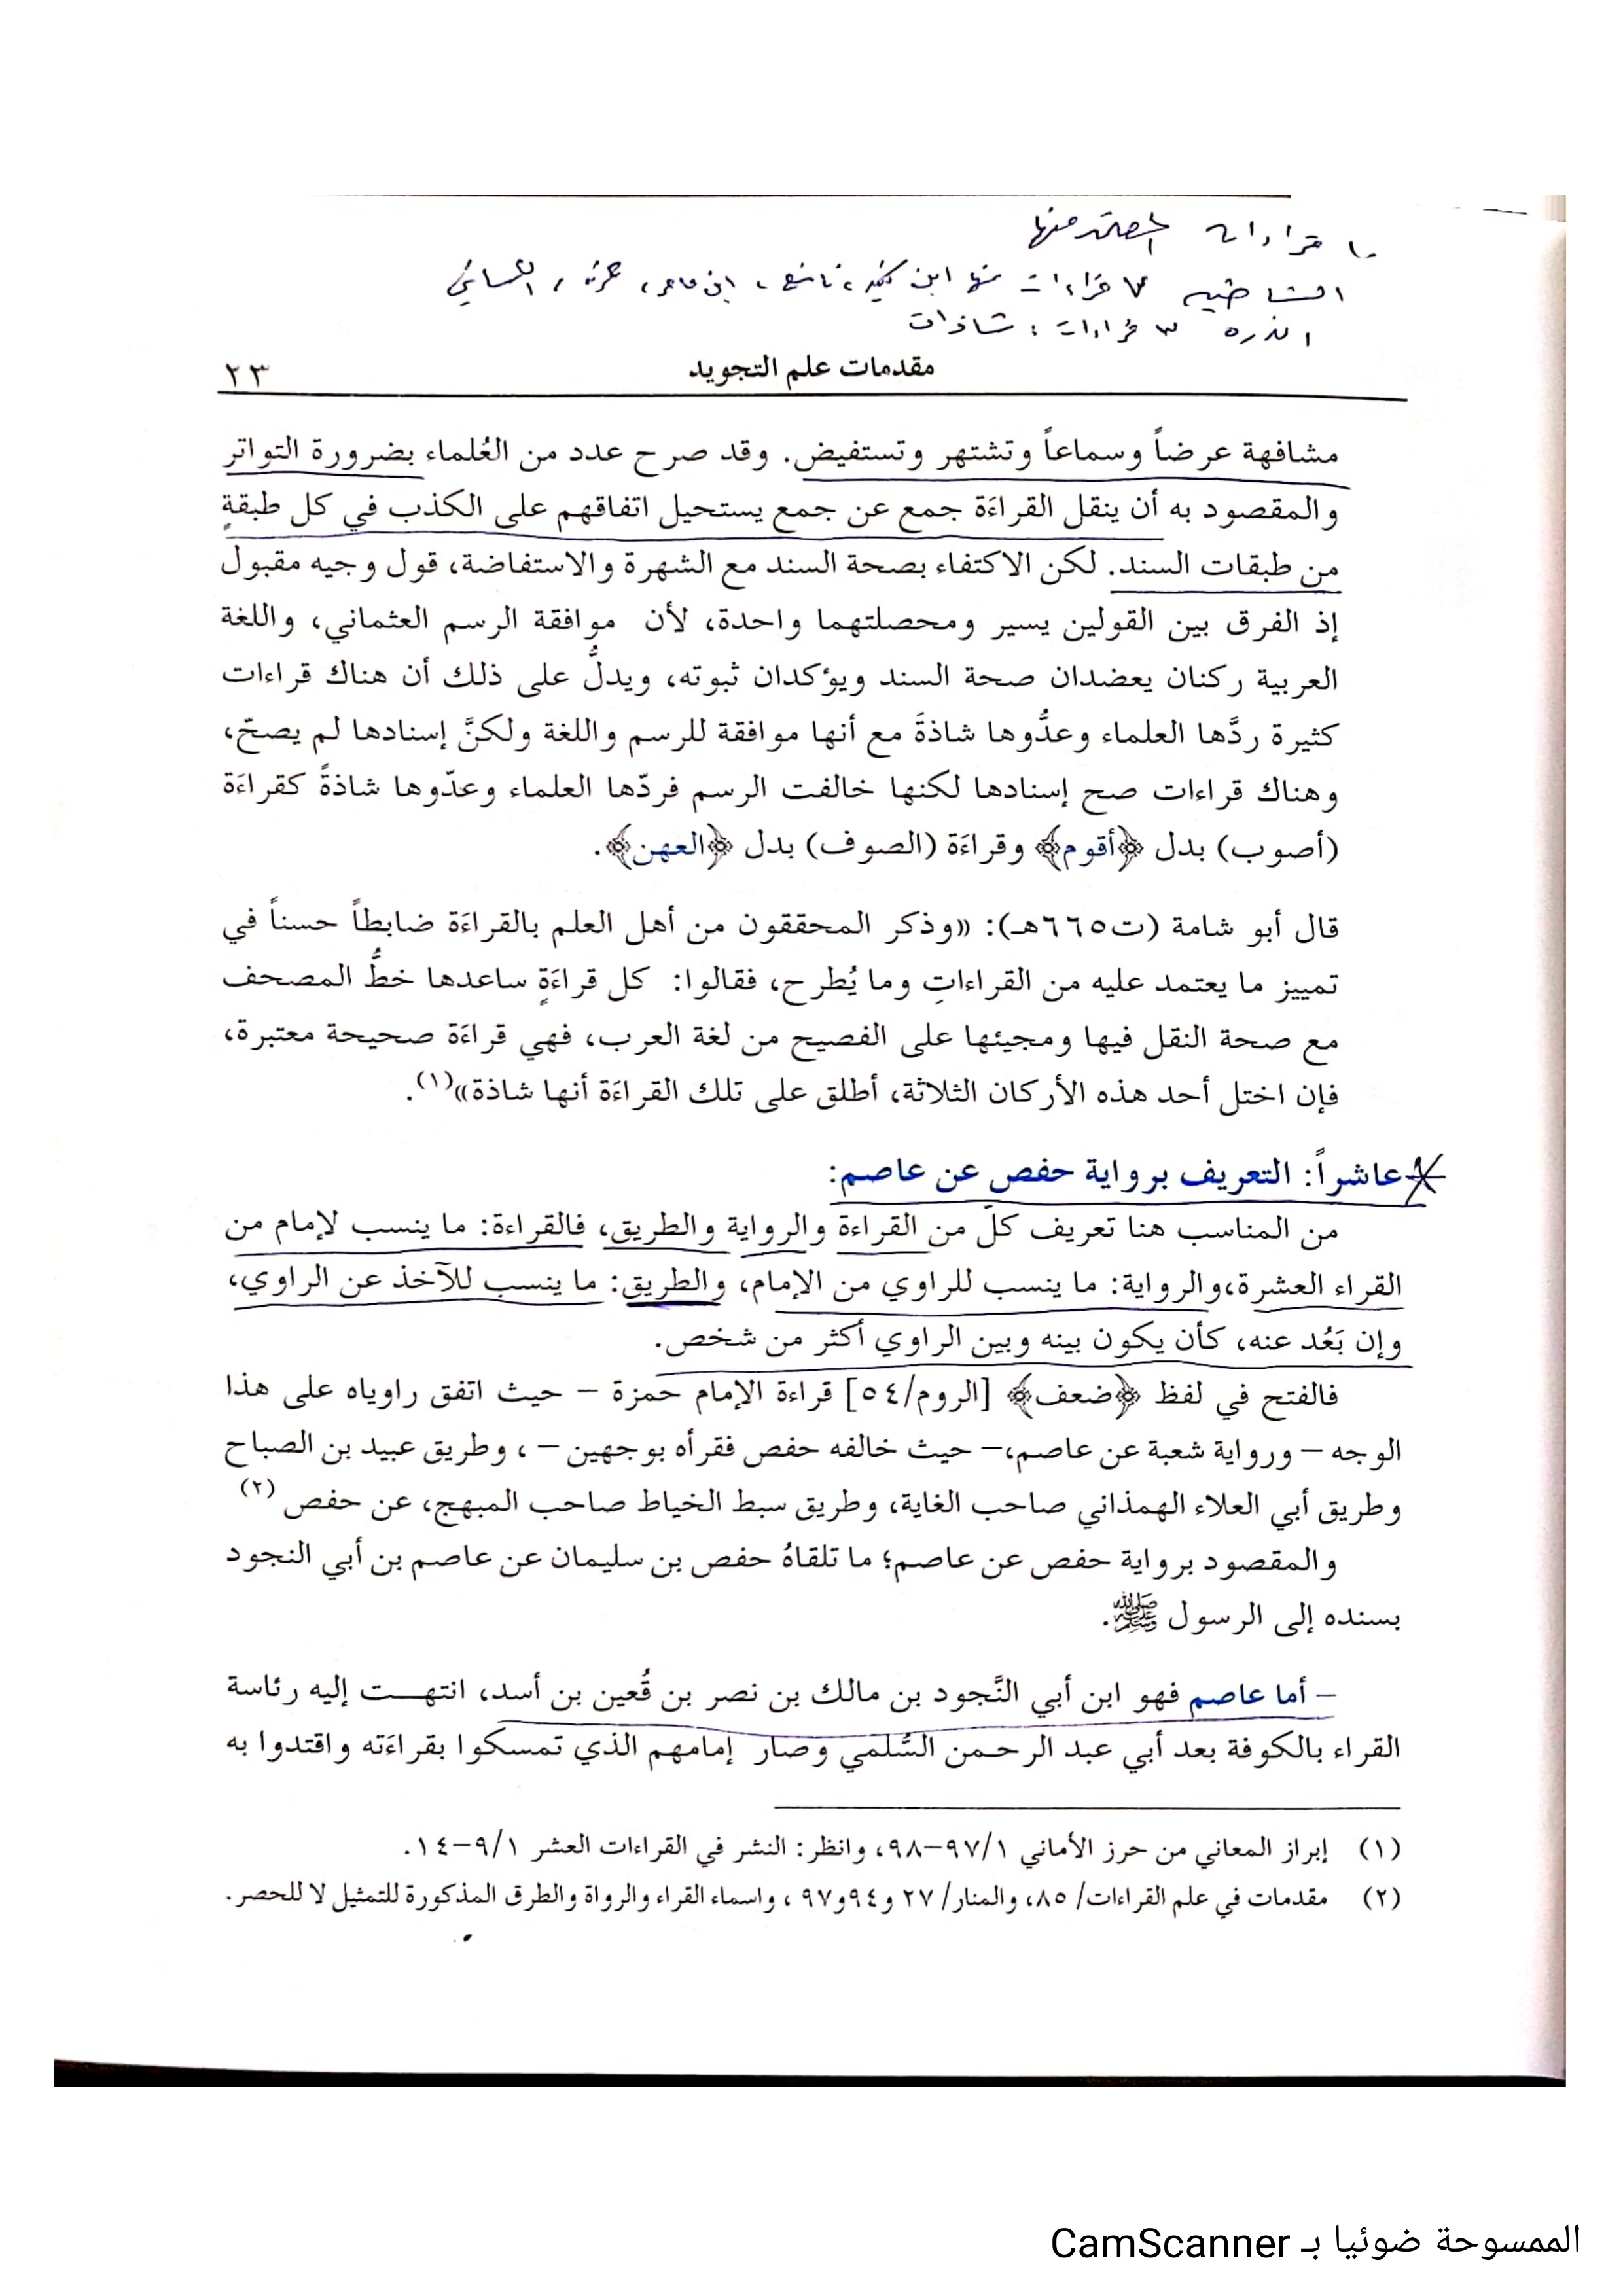 ١٠ قراءات المعتمد منها
الشاطبيه ٧ قراءات منها ابن كثير، نافع، ابن عامر، حمزه، الكسائي
الدره ٣ قراءات : شاذات
مقدمات علم التجويد ٢٣
مشافهة عرضاً وسماعاً وتشتهر وتستفيض. وقد صرح عدد من العُلماء بضرورة التواتر
والمقصود به أن ينقل القراءَة جمع عن جمع يستحيل اتفاقهم على الكذب في كل طبقةٍ
من طبقات السند. لكن الاكتفاء بصحة السند مع الشهرة والاستفاضة، قول وجيه مقبول
إذ الفرق بين القولين يسير ومحصلتهما واحدة، لأن موافقة الرسم العثماني، واللغة
العربية ركنان يعضدان صحة السند ويؤكدان ثبوته، ويدلُّ على ذلك أن هناك قراءات
كثيرة ردَّها العلماء وعدُّوها شاذةَ مع أنها موافقة للرسم واللغة ولكنَّ إسنادها لم يصحّ،
وهناك قراءات صح إسنادها لكنها خالفت الرسم فردّها العلماء وعدّوها شاذةً كقراءَة
(أصوب) بدل ﴿أقوم﴾ وقراءَة (الصوف) بدل ﴿العهن﴾.
قال أبو شامة (ت٦٦٥هـ): «وذكر المحققون من أهل العلم بالقراءَة ضابطاً حسناً في
تمييز ما يعتمد عليه من القراءاتِ وما يُطرح، فقالوا: كل قراءَةٍ ساعدها خطُّ المصحف
مع صحة النقل فيها ومجيئها على الفصيح من لغة العرب، فهي قراءَة صحيحة معتبرة،
فإن اختل أحد هذه الأركان الثلاثة، أطلق على تلك القراءَة أنها شاذة»(١).
عاشراً: التعريف برواية حفص عن عاصم:
من المناسب هنا تعريف كلّ من القراءة والرواية والطريق، فالقراءة: ما ينسب لإمام من
القراء العشرة،والرواية: ما ينسب للراوي من الإمام، والطريق: ما ينسب للآخذ عن الراوي،
وإن بَعُد عنه، كأن يكون بينه وبين الراوي أكثر من شخص.
فالفتح في لفظ ﴿ضعف﴾ [الروم/٥٤] قراءة الإمام حمزة – حيث اتفق راوياه على هذا
الوجه – ورواية شعبة عن عاصم،– حيث خالفه حفص فقرأه بوجهين – ، وطريق عبيد بن الصباح
وطريق أبي العلاء الهمذاني صاحب الغاية، وطريق سبط الخياط صاحب المبهج، عن حفص (٢)
والمقصود برواية حفص عن عاصم؛ ما تلقاهُ حفص بن سليمان عن عاصم بن أبي النجود
بسنده إلى الرسول ﷺ.
– أما عاصم فهو ابن أبي النَّجود بن مالك بن نصر بن قُعين بن أسد، انتهت إليه رئاسة
القراء بالكوفة بعد أبي عبد الرحمن السُّلمي وصار إمامهم الذي تمسكوا بقراءَته واقتدوا به
(١) إبراز المعاني من حرز الأماني ٩٧/١–٩٨، وانظر: النشر في القراءات العشر ٩/١–١٤.
(٢) مقدمات في علم القراءات/ ٨٥، والمنار/ ٢٧ و٩٤و٩٧ ، واسماء القراء والرواة والطرق المذكورة للتمثيل لا للحصر.
الممسوحة ضوئيا بـ CamScanner